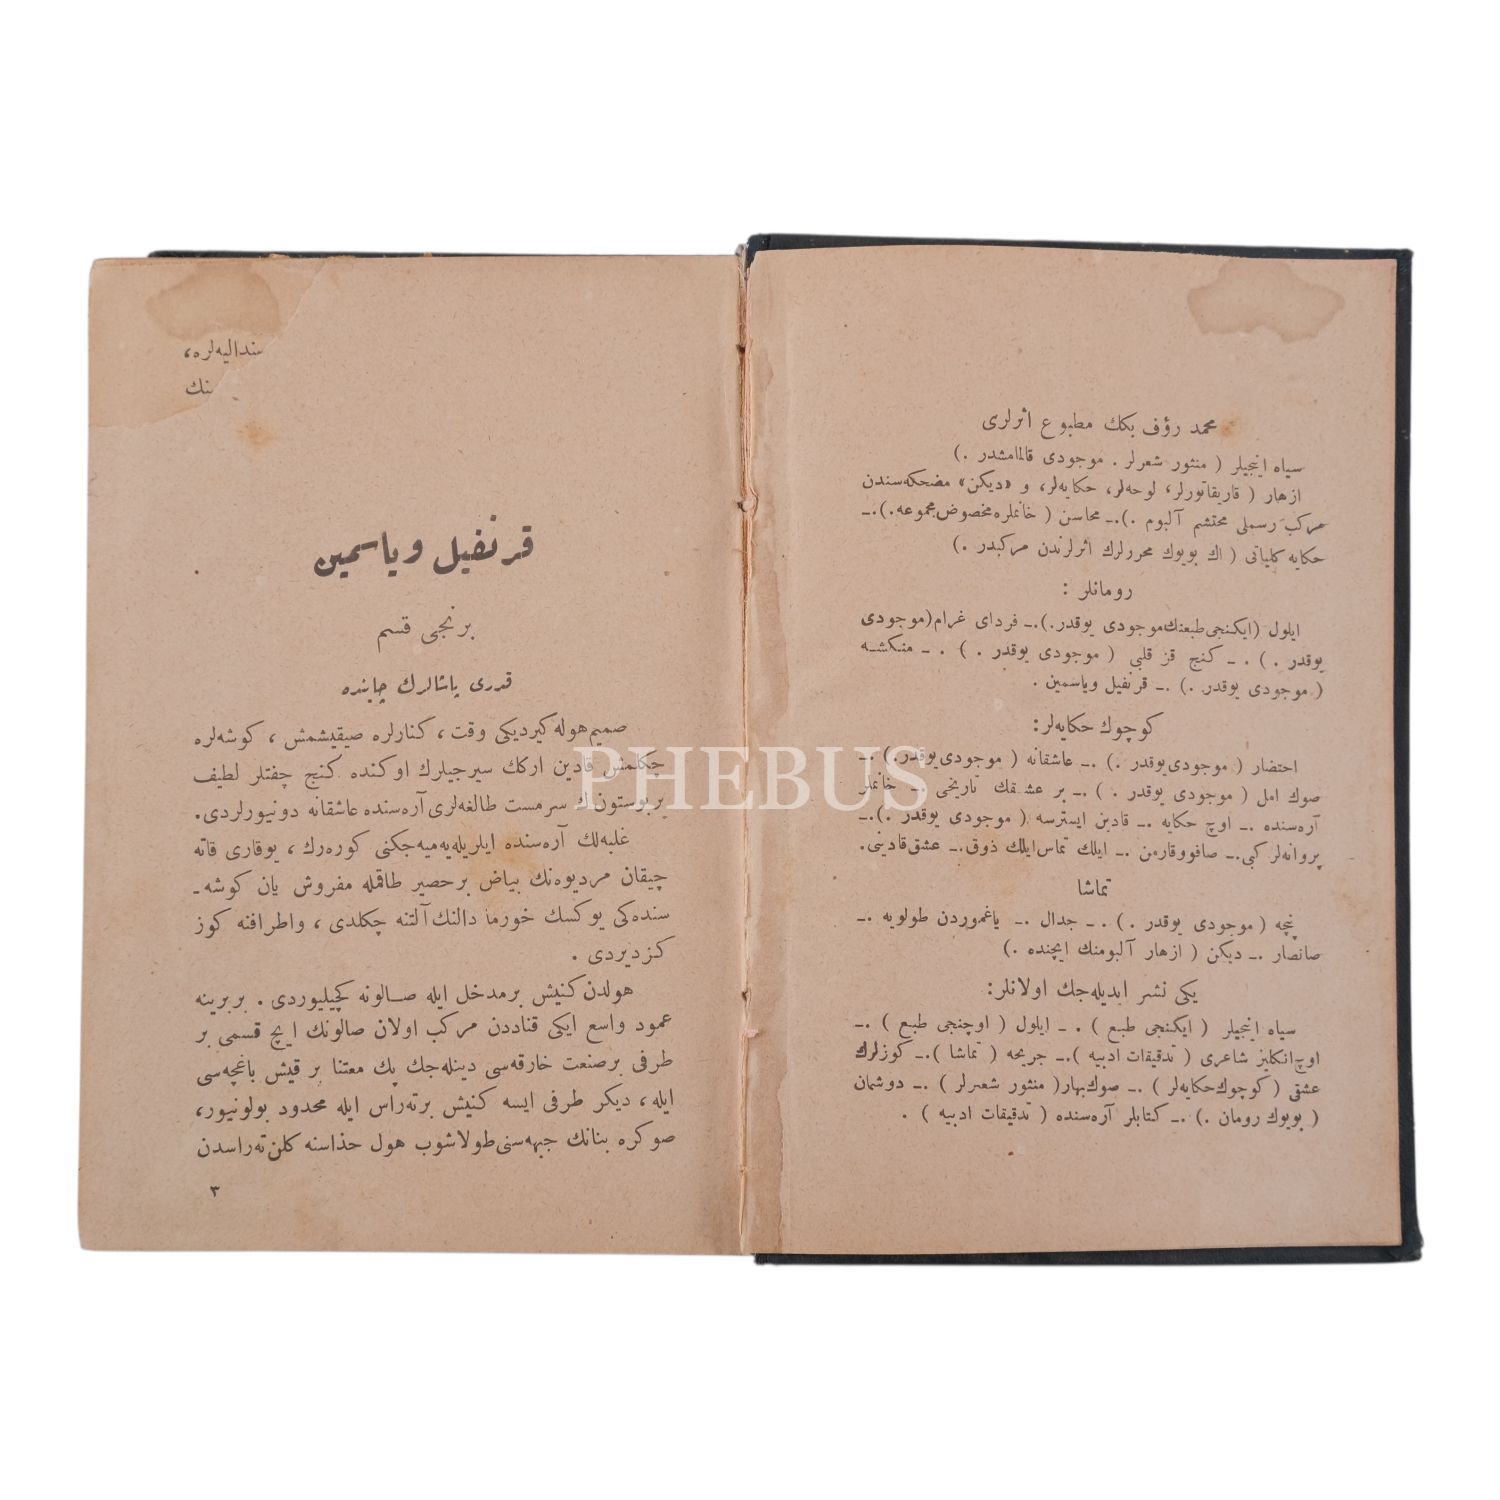 محمد رؤف بكك مطبوع اثرلری
سیاه اینجیلر ( منثور شعرلر . موجودی قالمامشدر . )
ازهار ( قاریقاتورلر، لوحه‌لر، حكایه‌لر، و «دیكن» مضحكه‌سندن
مركب رسملی محتشم آلبوم .) .ـ محاسن ( خانملره مخصوص مجموعه.) .ـ
حكایه كلیاتی ( اك بویوك محررلرك اثرلرندن مركبدر . )
رومانلر :
ایلول (ایكنجی طبعنك موجودی یوقدر.) .ـ فردای غرام (موجودی
یوقدر . ) . ـ كنج قز قلبی ( موجودی یوقدر . ) . ـ منكشه
( موجودی یوقدر . ) .ـ قرنفیل و یاسمین .
كوچوك حكایه‌لر:
احتضار ( موجودی یوقدر .) .ـ عاشقانه ( موجودی یوقدر.) .ـ
صوك امل ( موجودی یوقدر . ) .ـ بر عشقك تاریخی .ـ خانملر
آره‌سنده .ـ اوچ حكایه .ـ قادین ایسترسه ( موجودی یوقدر .) .ـ
پروانه‌لر كبی .ـ صافو و قارمن .ـ ایلك تماس ایلك ذوق .ـ عشق قادینی.
تماشا
پنچه ( موجودی یوقدر . ) . ـ جدال .ـ یاغموردن طولویه .ـ
صانصار .ـ دیكن ( ازهار آلبومنك ایچنده . )
یكی نشر ایدیله‌جك اولانلر:
سیاه اینجیلر ( ایكنجی طبع ) . ـ ایلول ( اوچنجی طبع ) .ـ
اوچ انكلیز شاعری ( تدقیقات ادبیه ) .ـ جریحه ( تماشا ) .ـ كوزلرك
عشقی ( كوچوك حكایه‌لر ) .ـ صوك بهار ( منثور شعرلر ) .ـ دوشمان
( بویوك رومان .) .ـ كتابلر آره‌سنده ( تدقیقات ادبیه ) .
سندالیه‌لره،
نك
قرنفیل و یاسمین
برنجی قسم
قدری پاشالرك چاینده
صمیم هوله كیردیكی وقت، كنارلره صیقیشمش، كوشه‌لره
چكلمش قادین اركك سیرجیلرك اوكنده كنج چفتلر لطیف
بر بوستونك سرمست طالغه‌لری آره‌سنده عاشقانه دونیورلردی.
غلبه‌لك آره‌سنده ایلریله‌یه‌میه‌جكنی كوره‌رك، یوقاری قاته
چیقان مردیوه‌نك بیاض بر حصیر طاقمله مفروش یان كوشه‌ـ
سنده‌كی یوكسك خورما دالنك آلتنه چكلدی، و اطرافنه كوز
كزدیردی .
هولدن كنیش بر مدخل ایله صالونه كچیلیوردی . بربرینه
عمود واسع ایكی قناددن مركب اولان صالونك ایچ قسمی بر
طرفی بر صنعت خارقه‌سی دینله‌جك پك معتنا بر قیش باغچه‌سی
ایله، دیكر طرفی ایسه كنیش بر ته‌راس ایله محدود بولونیور،
صوكره بنانك جبهه‌سنی طولاشوب هول حذاسنه كلن ته‌راسدن
٣
PHEBUS